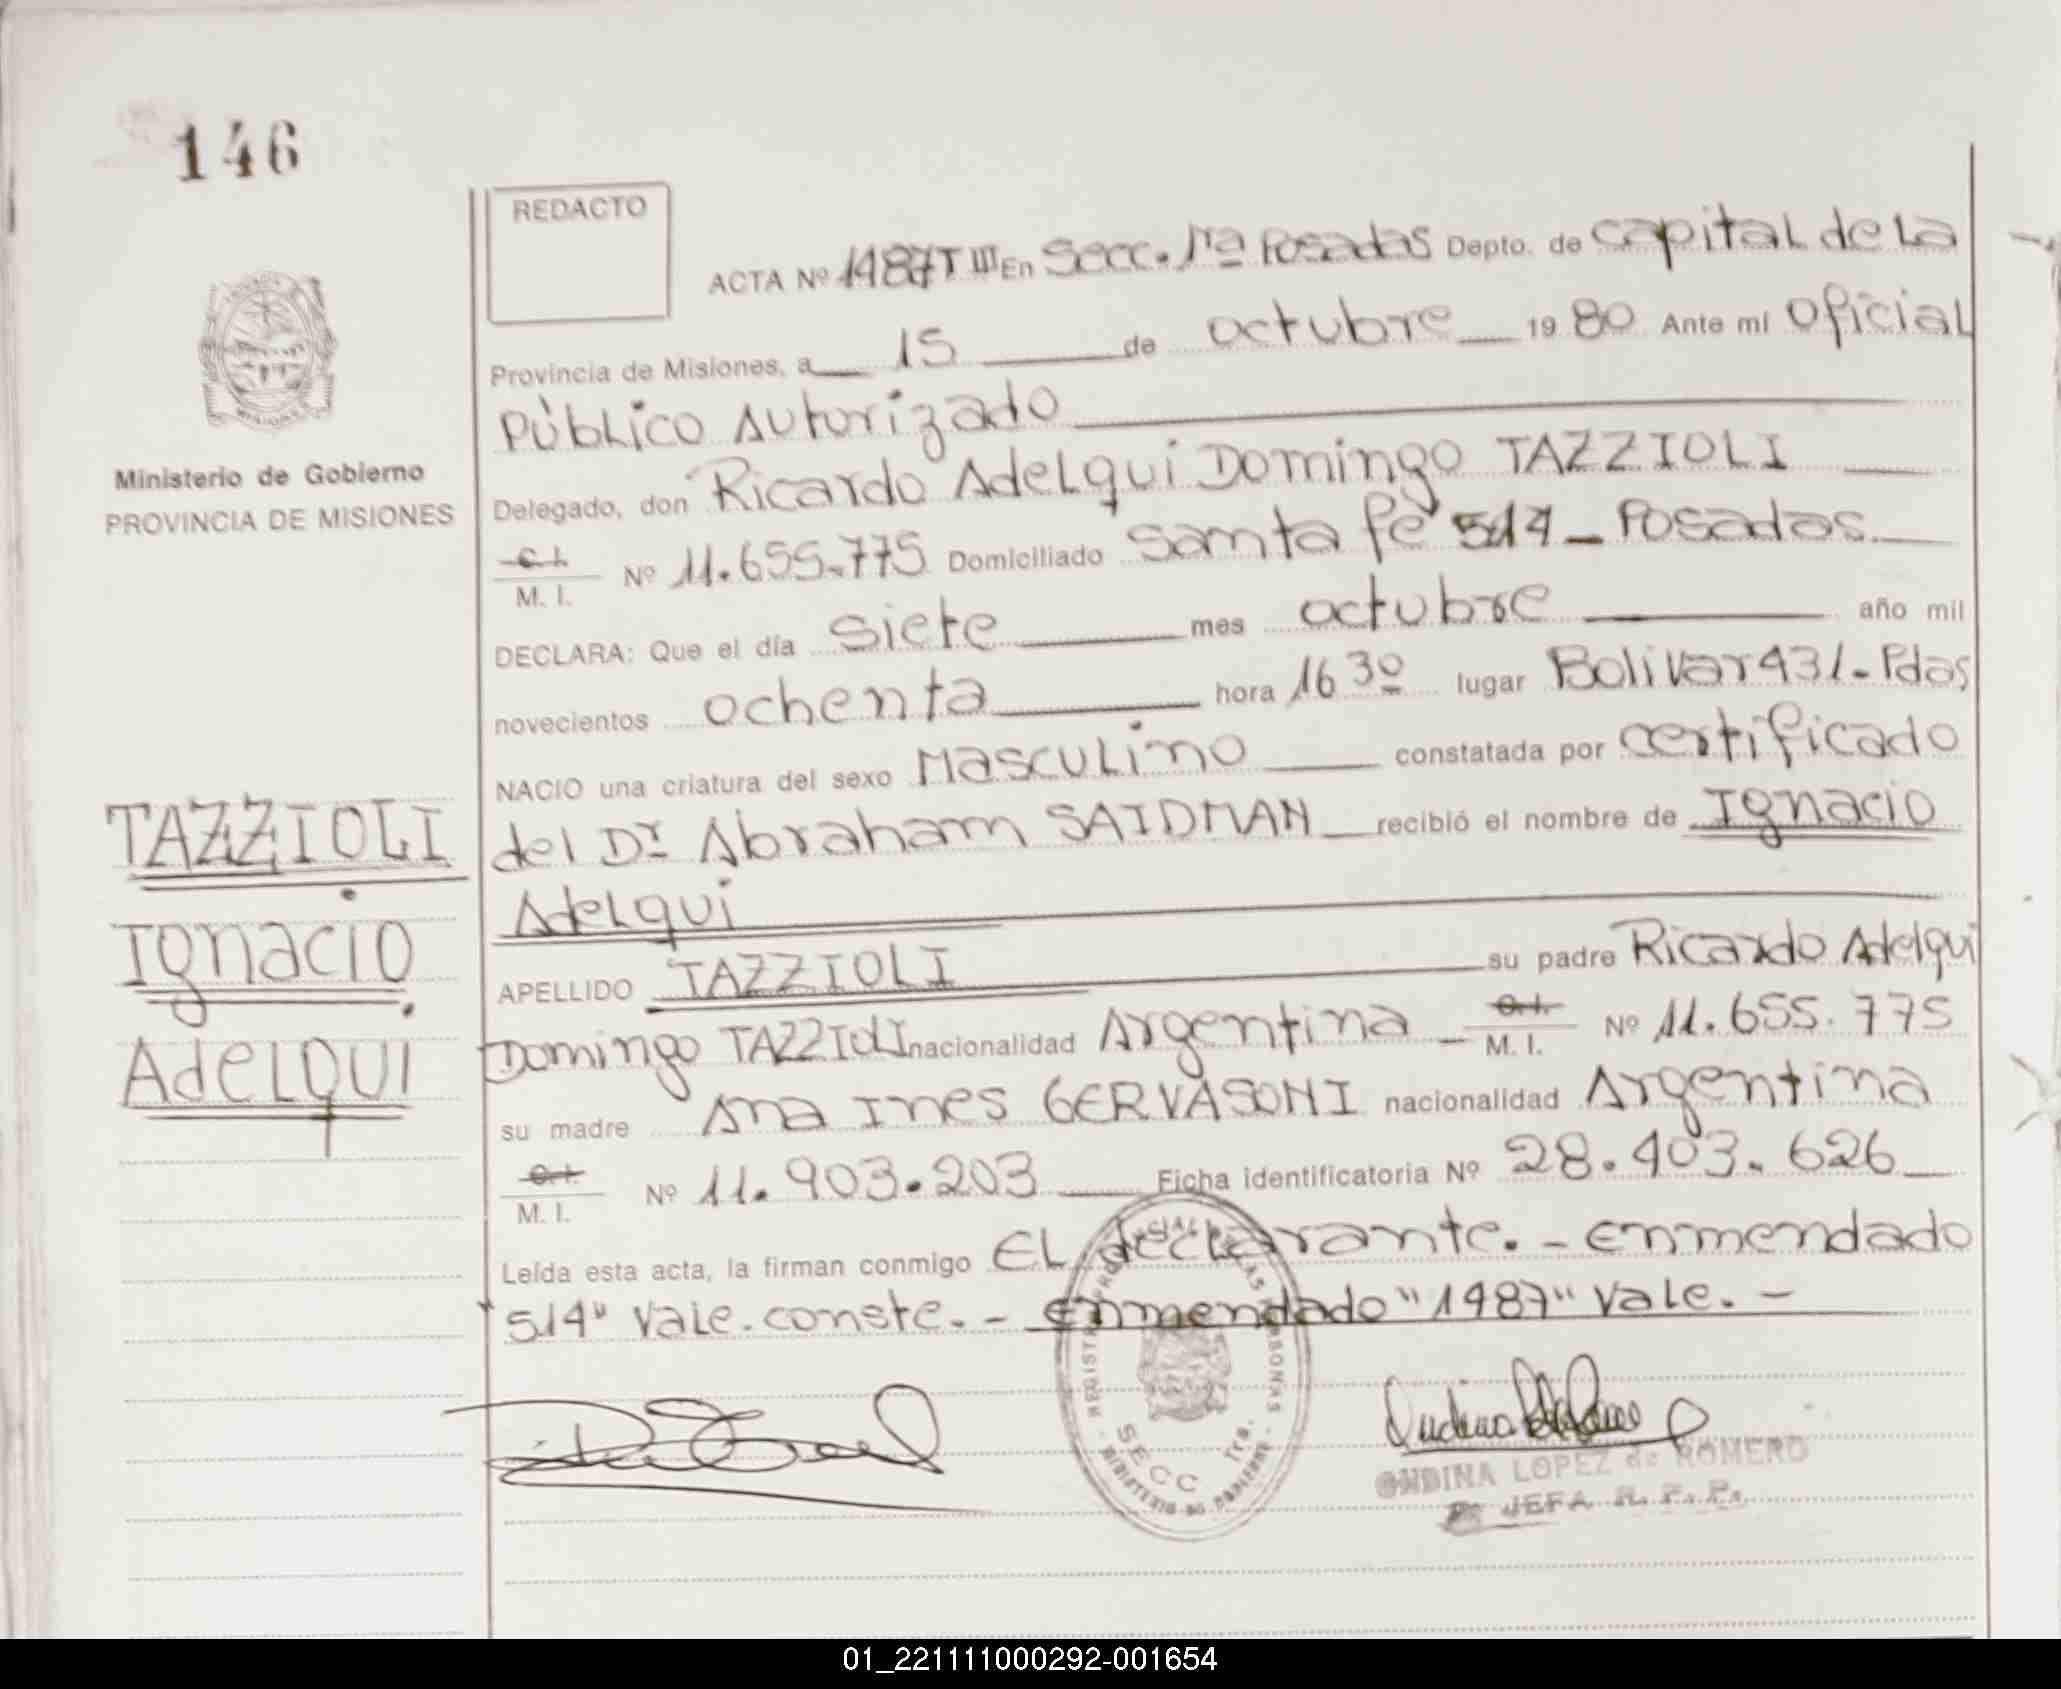 146
REDACTO
ACTA Nº 1487 T III En Secc. 1ra Posadas Depto. de Capital de La
Provincia de Misiones, a 15 de octubre 19 80 Ante mí Oficial
Público Autorizado
Delegado, don Ricardo Adelqui Domingo TAZZIOLI
C.I.
M. I. Nº 11.655.775 Domiciliado Santa fé 514 - Posadas.
DECLARA: Que el día siete mes octubre año mil
novecientos ochenta hora 16 30 lugar Bolivar 431 - Pdas
NACIO una criatura del sexo Masculino constatada por certificado
del Dr Abraham SAIDMAN recibió el nombre de Ignacio
Adelqui
APELLIDO TAZZIOLI su padre Ricardo Adelqui
Domingo TAZZIOLI nacionalidad Argentina - C.I.
M. I. Nº 11.655.775
su madre Ana Ines GERVASONI nacionalidad Argentina
C.I.
M. I. Nº 11.903.203 Ficha identificatoria Nº 28.403.626
Leída esta acta, la firman conmigo EL declarante. - Enmendado
"514" Vale. conste. - Enmendado "1487" Vale. -
Ministerio de Gobierno
PROVINCIA DE MISIONES
TAZZIOLI
Ignacio
AdeLQUI
SECC 1ra.
ONDINA LOPEZ de ROMERO
JEFA R. P. P.
01_221111000292-001654